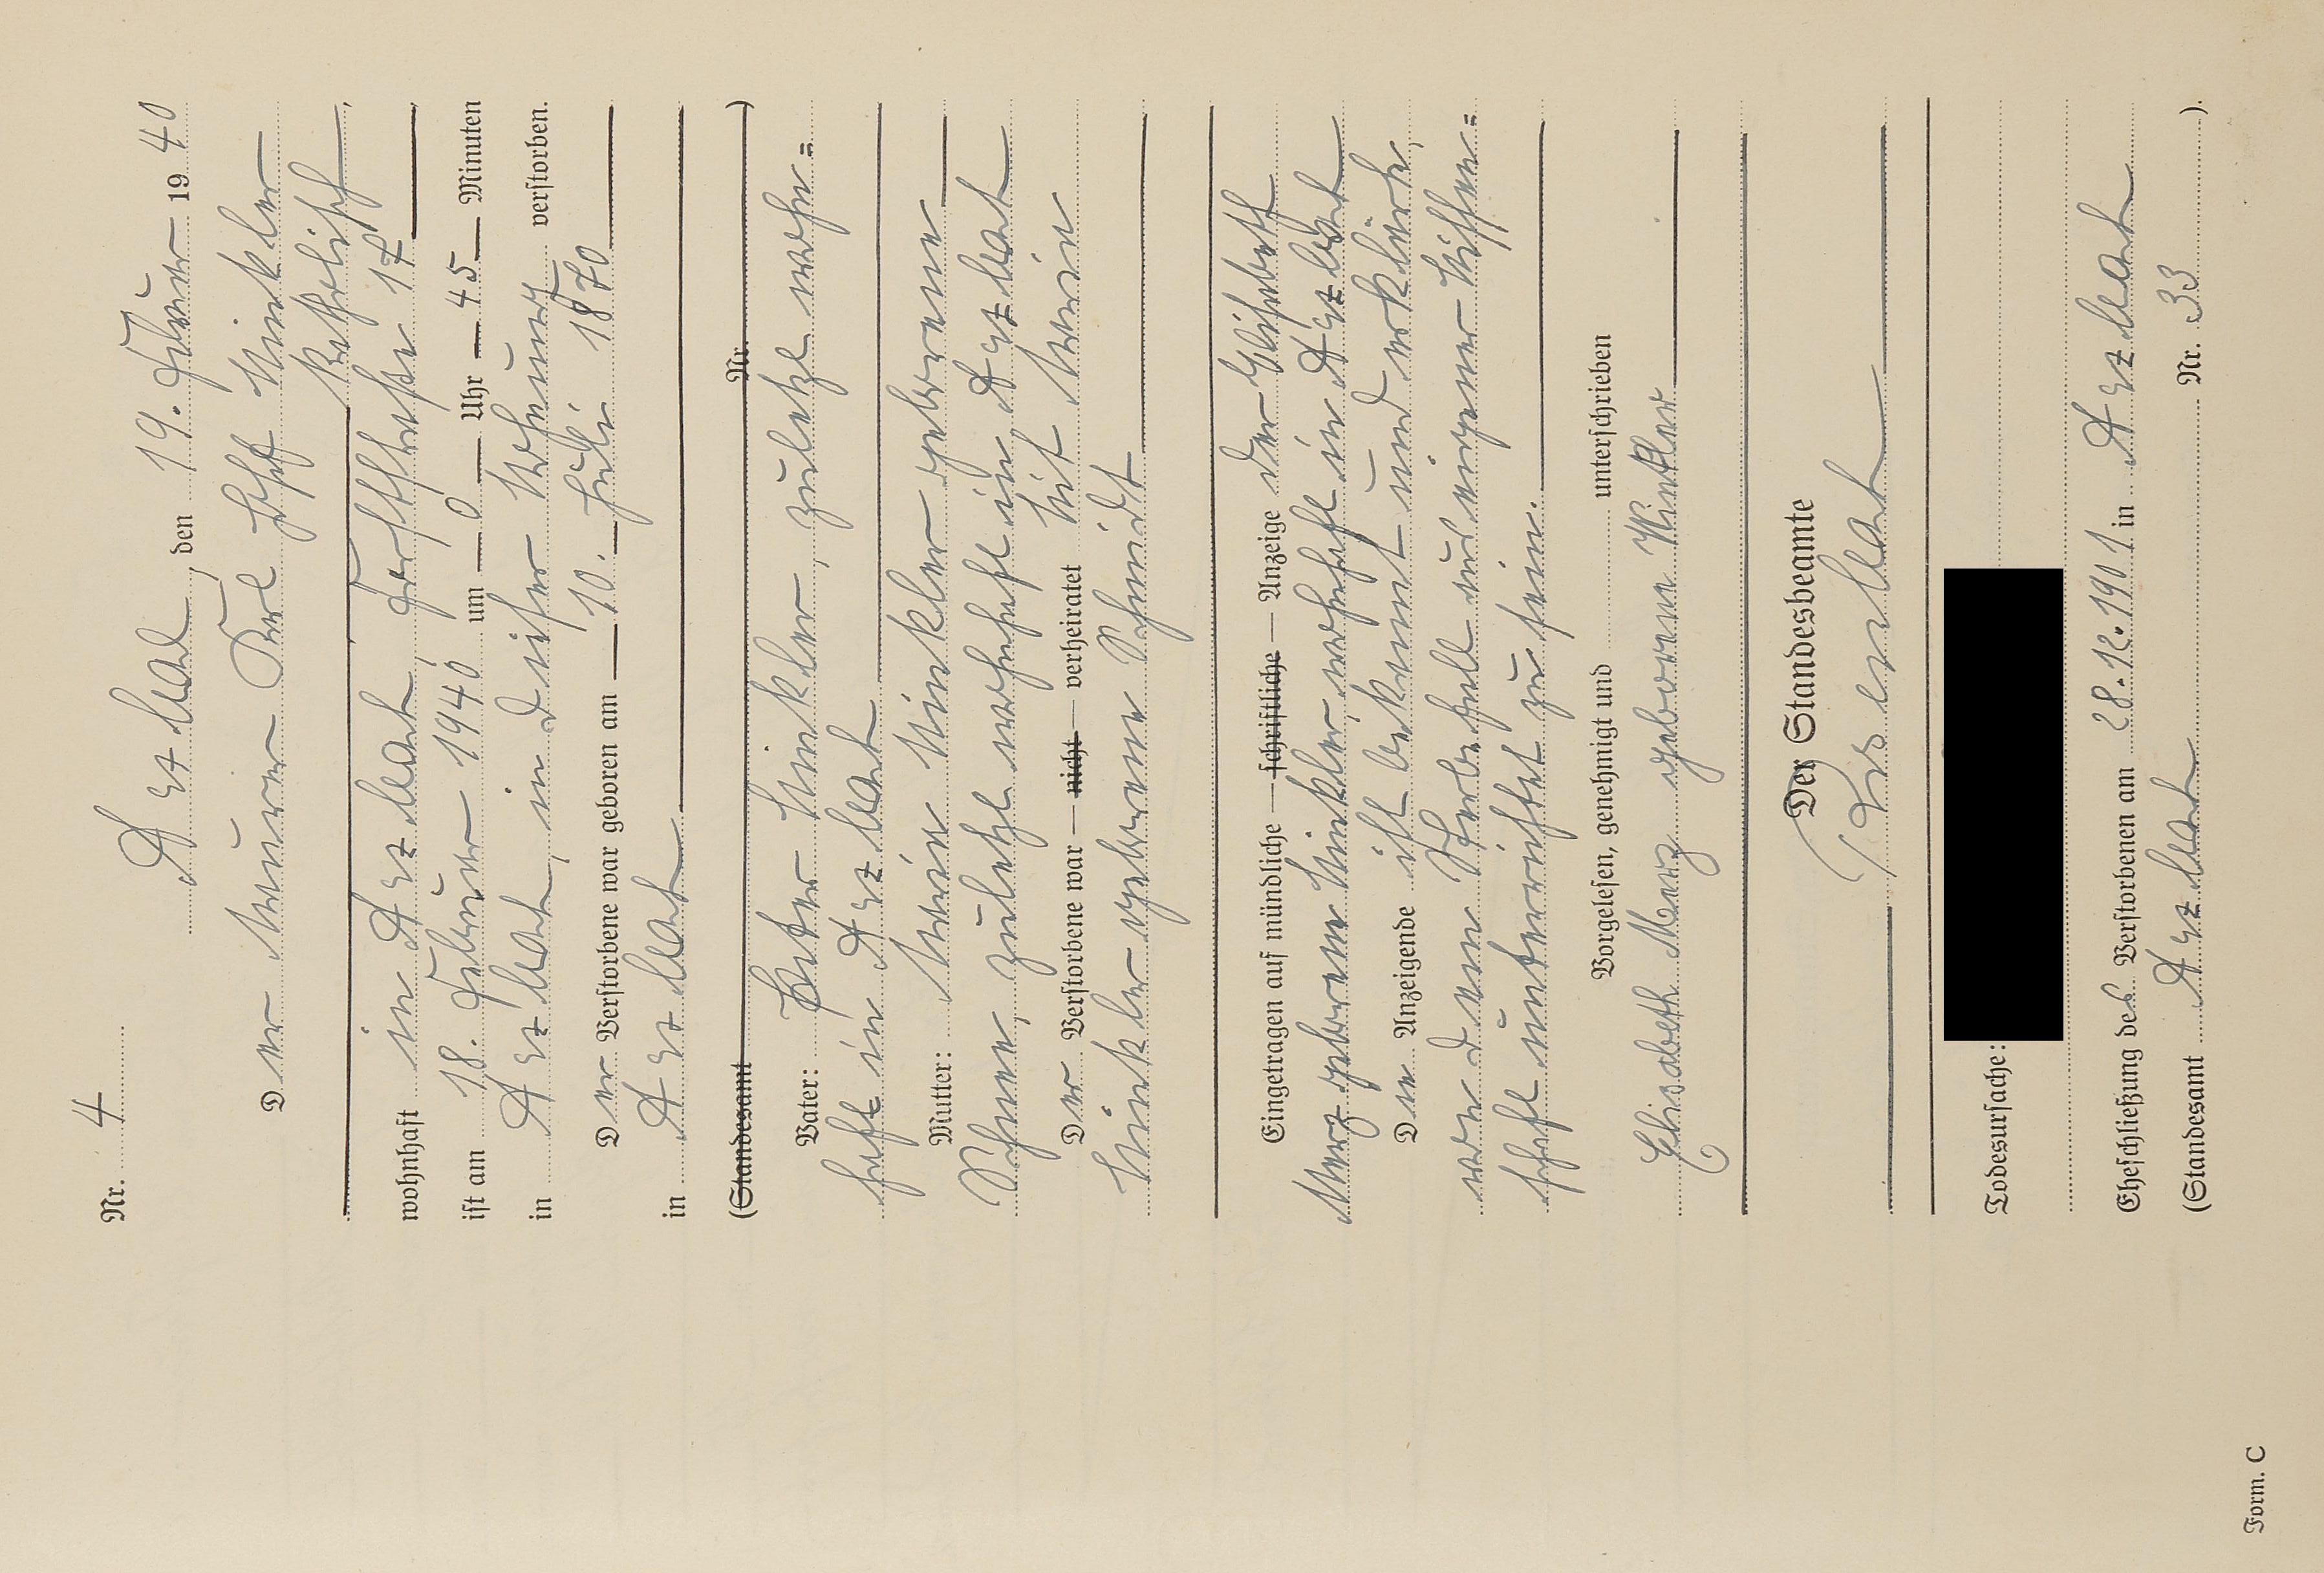 Nr. 4
Arzbach, den 19. Februar 1940
Der Maurer Karl Josef Winkler
katholisch,
wohnhaft in Arzbach, 17
ist am 18. Februar 1940 um 0 Uhr 45 Minuten
in Arzbach, in seiner Wohnung verstorben.
Der Verstorbene war geboren am 10. Juli 1870
in Arzbach
(Standesamt Nr. )
Vater: Peter Winkler, zuletzt wohn=
haft in Arzbach
Mutter: Maria Winkler geborene
zuletzt wohnhaft in Arzbach
Der Verstorbene war — nicht — verheiratet mit Maria
Winkler geborene Schmidt
Eingetragen auf mündliche — schriftliche — Anzeige der Elisabeth
Merz geborene Winkler, wohnhaft in Arzbach
Die Anzeigende ist bekannt und erklärte,
von dem Sterbefall aus eigener Wissen=
schaft unterrichtet zu sein.
Vorgelesen, genehmigt und unterschrieben
Elisabeth Merz geborene Winkler
Der Standesbeamte
Todesursache:
Eheschließung des Verstorbenen am 28.12.1901 in Arzbach
(Standesamt Arzbach Nr. 33 ).
Form. C